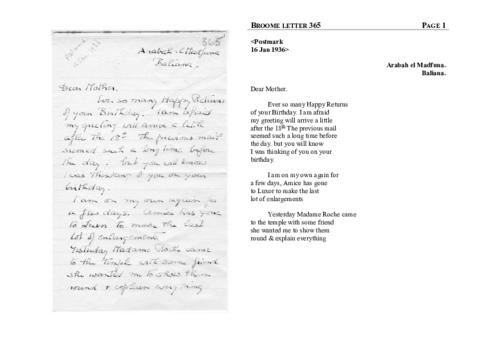 365
Arabah el Madfuna
Baliana.
Dear Mother.
Ever so many Happy Returns
of your Birthday. I am afraid
my greeting will arrive a little
after the 18th The previous mail
seemed such a long time before
the day. but you will know
I was thinking of you on your
birthday.
I am on my own again for
a few days. Amice has gone
to Luxor to make the last
lot of enlargements
Yesterday Madame Roche came
to the temple with some friend
she wanted me to show them
round & explain everything
BROOME LETTER 365 PAGE 1
<Postmark
16 Jan 1936>
Arabah el Madfuna.
Baliana.
Dear Mother.
Ever so many Happy Returns
of your Birthday. I am afraid
my greeting will arrive a little
after the 18th The previous mail
seemed such a long time before
the day. but you will know
I was thinking of you on your
birthday.
I am on my own again for
a few days, Amice has gone
to Luxor to make the last
lot of enlargements
Yesterday Madame Roche came
to the temple with some friend
she wanted me to show them
round & explain everything